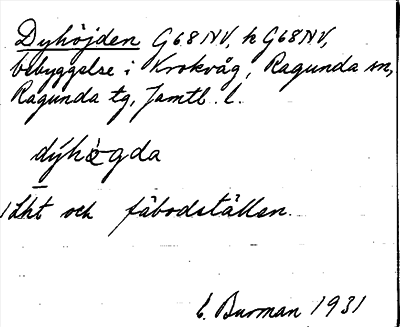 Dyhöjden G68NV, k G68NV,
bebyggelse i Krokvåg, Ragunda sn,
Ragunda tg, Jämtl. l.
dýhògda
1 Lht och fäbodställen.
E. Burman 1931